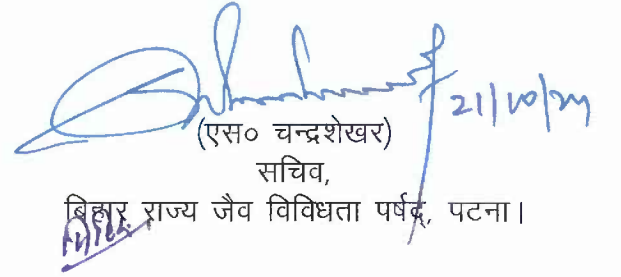 21/10/24
(एस० चन्द्रशेखर)
सचिव,
बिहार राज्य जैव विविधता पर्षद्, पटना।